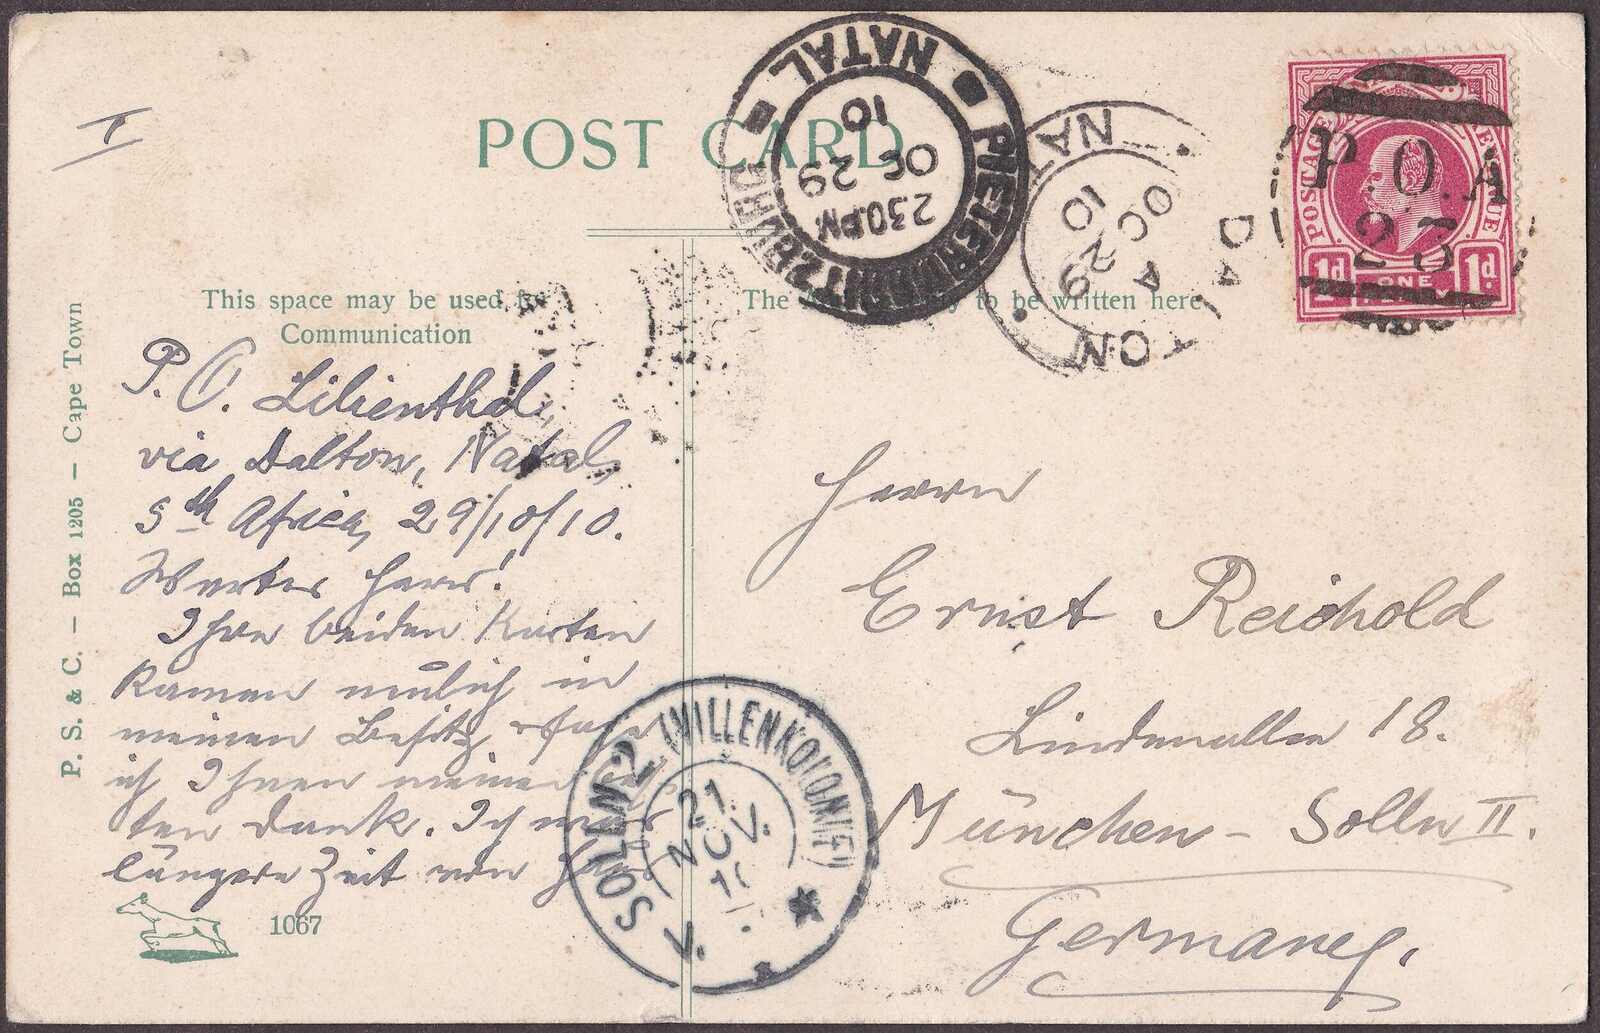 I
POST CARD
This space may be used for
Communication
The Address only to be written here
P. S. & C. – Box 1205 – Cape Town
P. O. Lilienthal,
via Dalton, Natal,
Sth Africa, 29/10/10.
Werter Herr!
Ihre beiden Karten
kamen neulich in
meinen Besitz, sage
ich Ihnen meinen
ten Dank. Ich war
längere Zeit von Haus
1067
PIETERMARITZBURG
NATAL
2.30 PM
OC 29
10
DALTON
NATAL
A
OC 29
10
POSTAGE REVENUE
P.O.A
23
1d ONE 1d
Herrn
Ernst Reichold
Lindenallee 18.
München - Solln II.
Germany.
SOLLN 2 (VILLENKOLONIE)
21
NOV.
10
V.